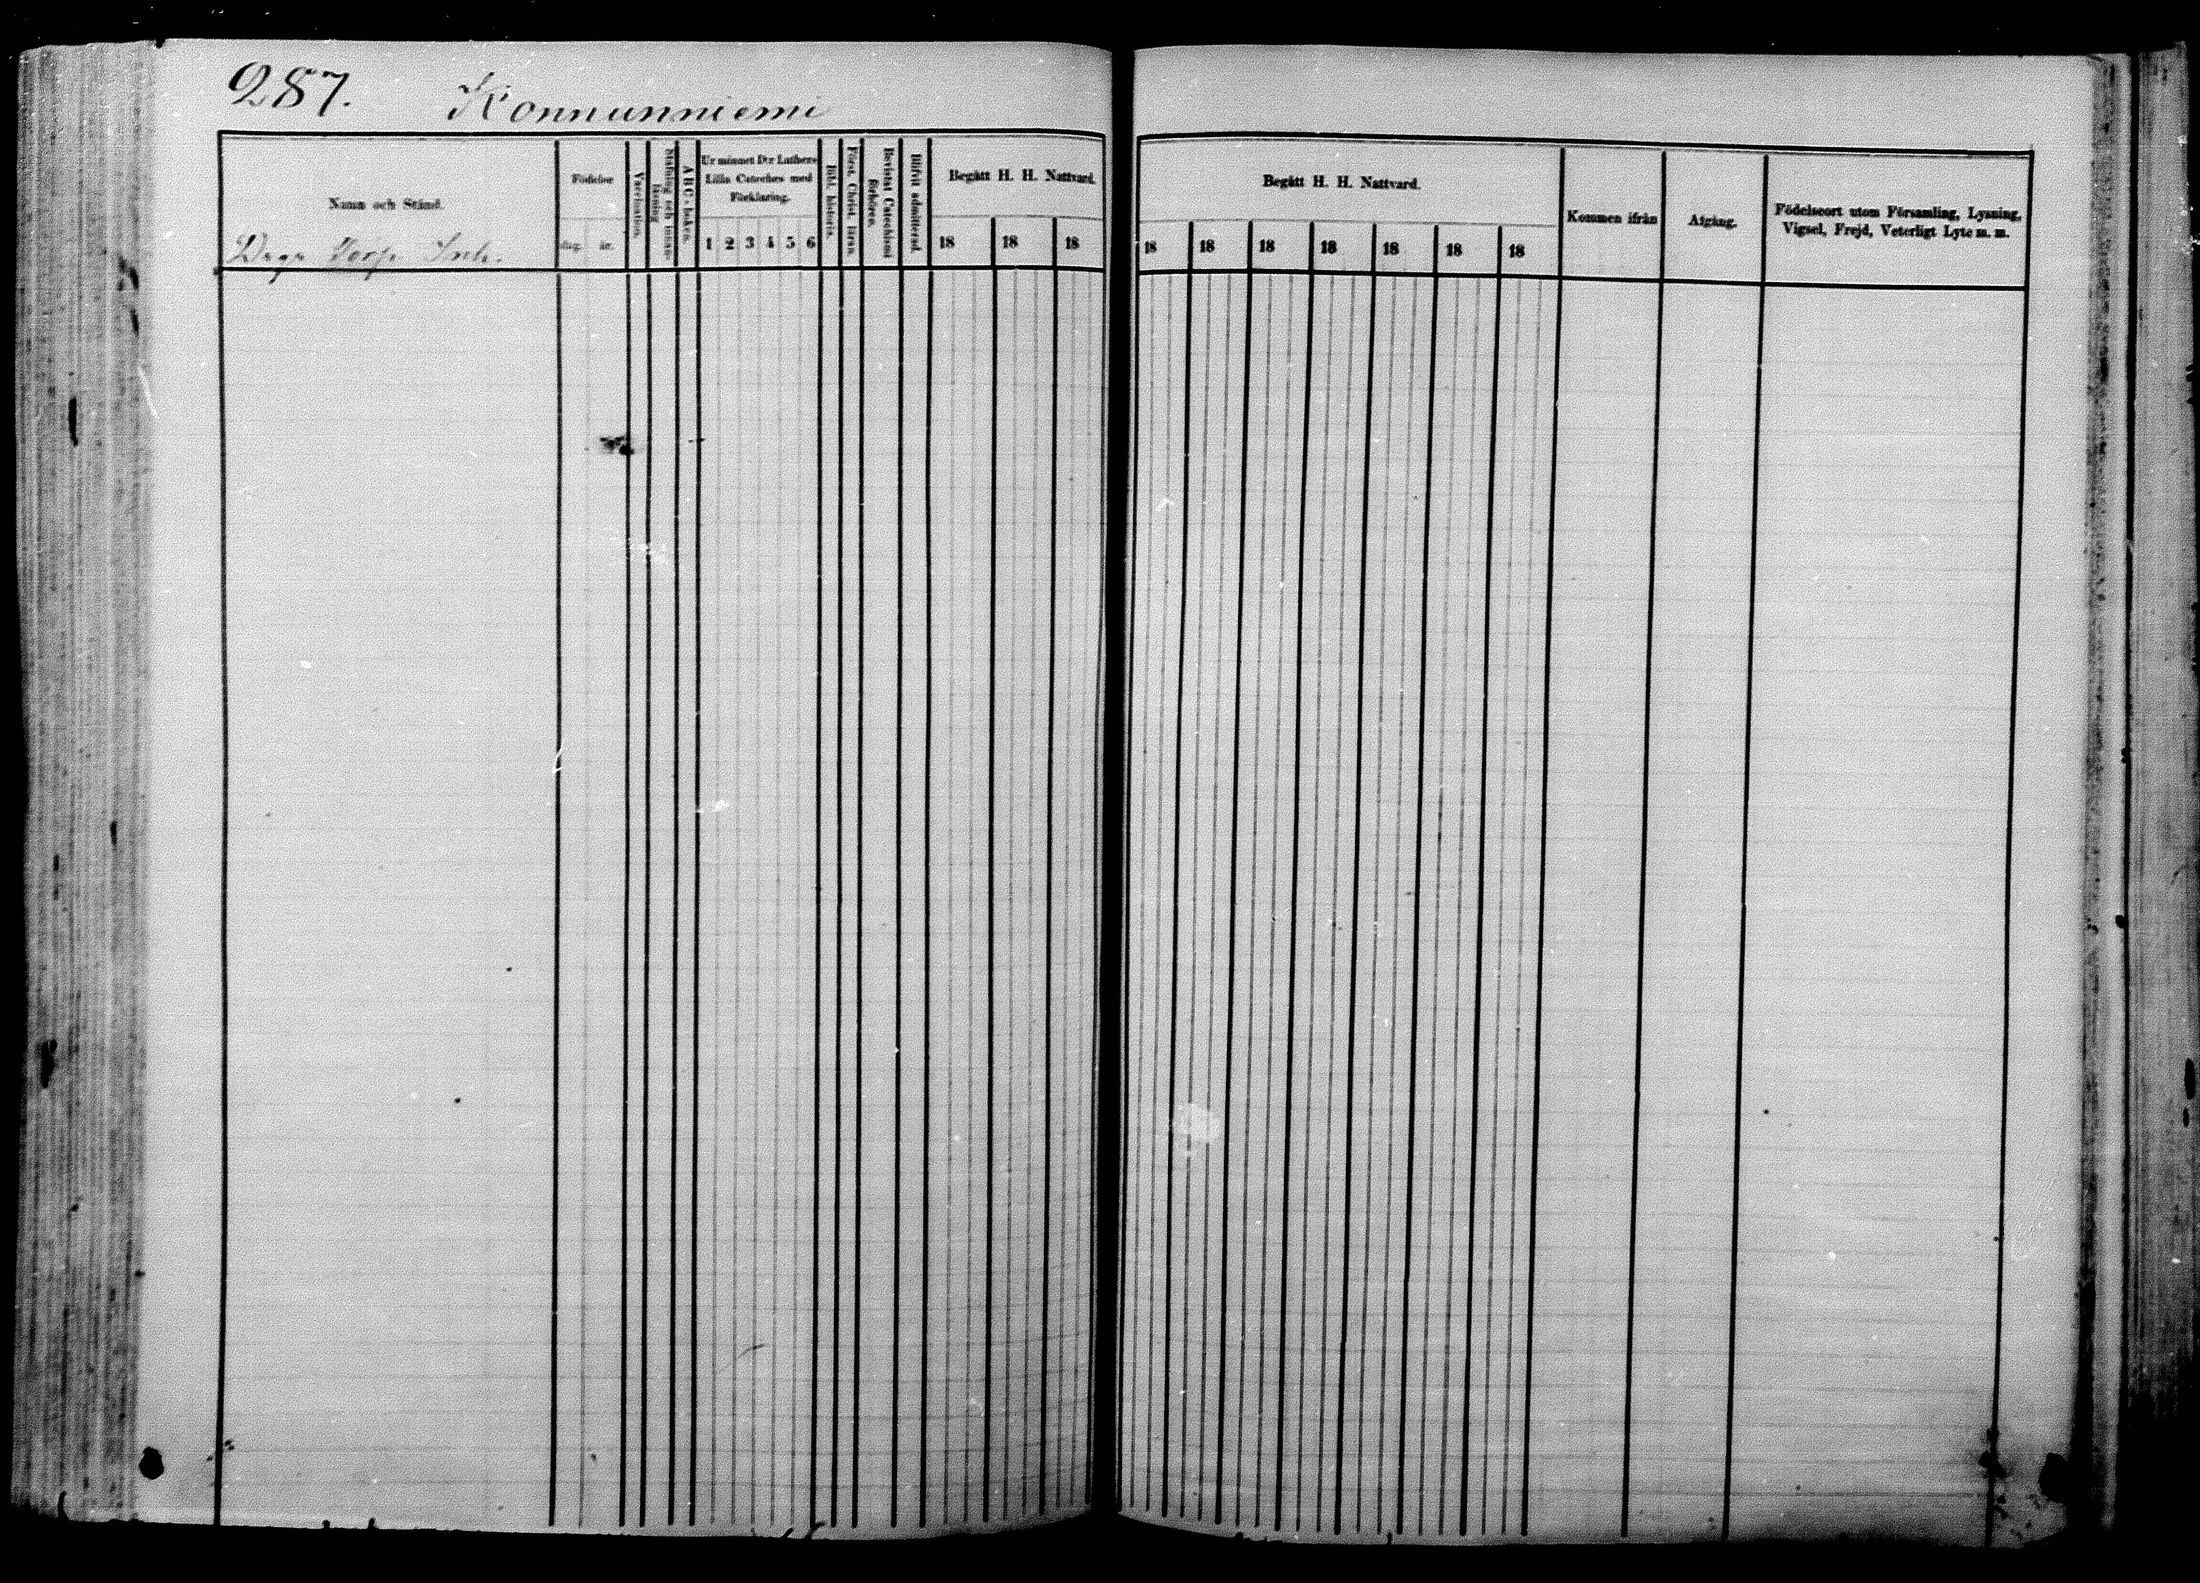 287. Konnunniemi
Namn och Stånd.
Torp. Inh.
Födelse
dag. år.
Vaccination.
Stafning och innan-
läsning
ABC-boken.
Ur minnet D:r Luthers
Lilla Cateches med
Förklaring.
1 2 3 4 5 6
Bibl. historia.
Först. Christ. läran.
Bevistat Catechismi
förhören.
Blifvit admitterad.
Begått H. H. Nattvard.
18 18 18
Begått H. H. Nattvard.
18 18 18 18 18 18 18
Kommen ifrån
Afgång.
Födelseort utom Församling, Lysning,
Vigsel, Frejd, Veterligt Lyte m. m.